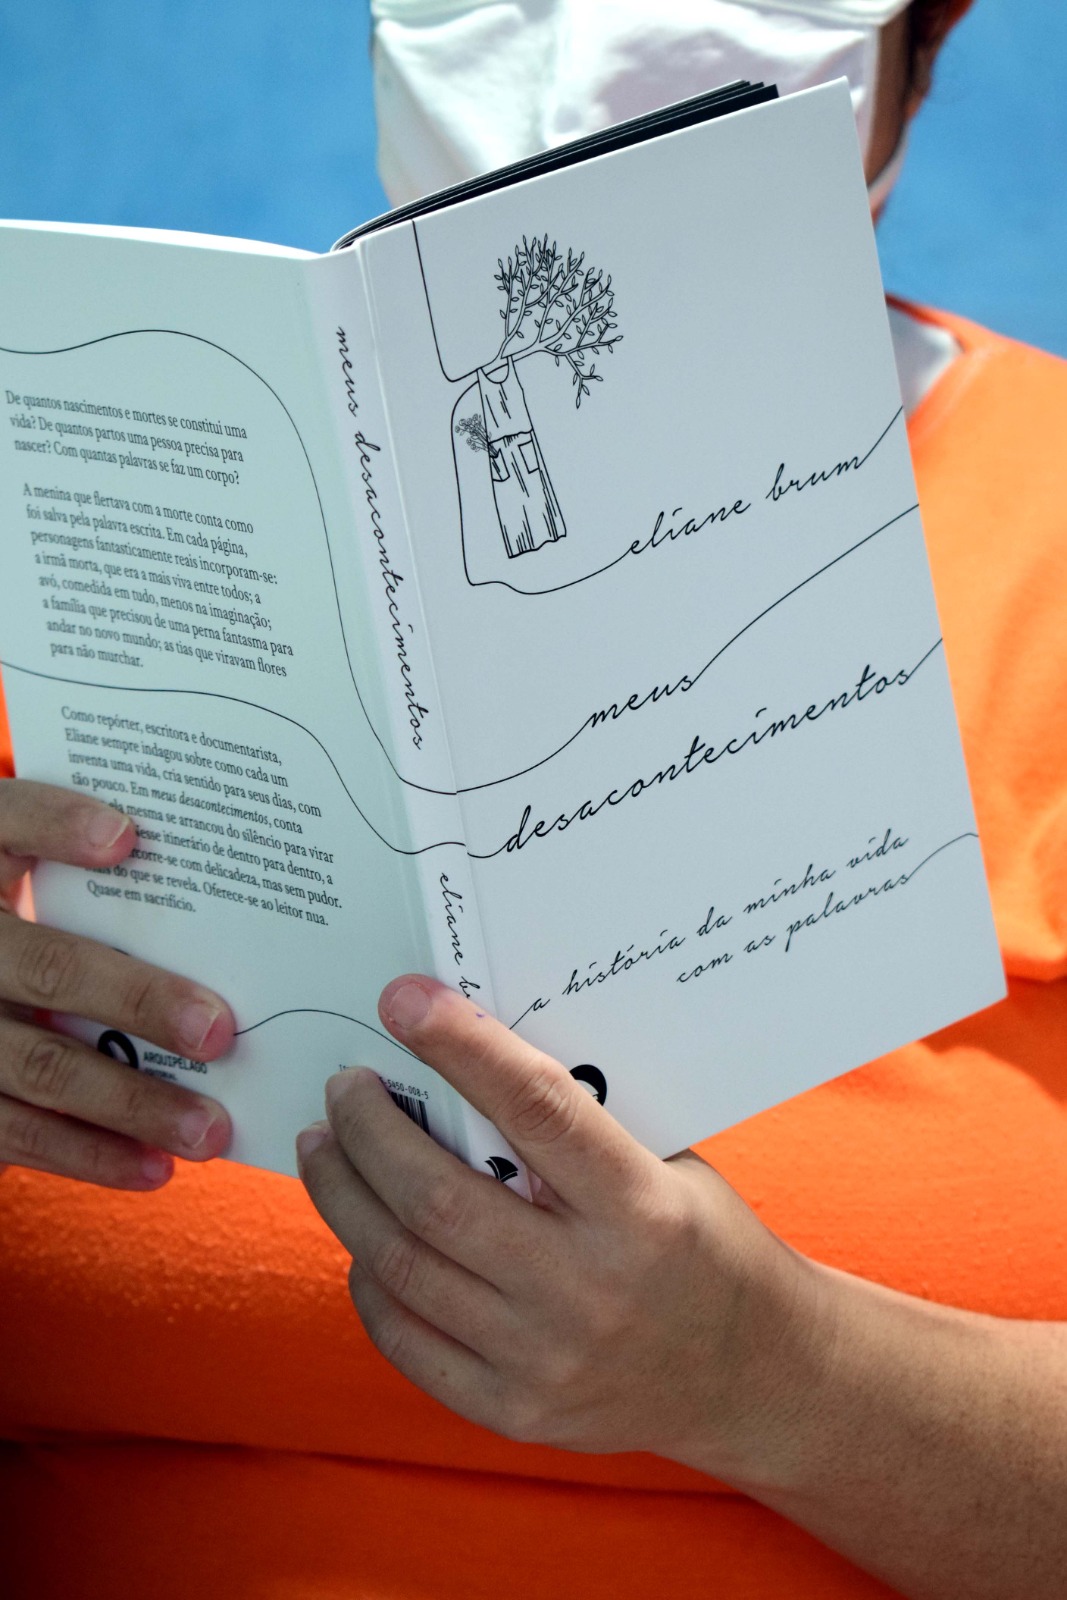 De quantos nascimentos e mortes se constitui uma
vida? De quantos partos uma pessoa precisa para
nascer? Com quantas palavras se faz um corpo?
A menina que flertava com a morte conta como
foi salva pela palavra escrita. Em cada página,
personagens fantasticamente reais incorporam-se:
a irmã morta, que era a mais viva entre todos; a
avó, comedida em tudo, menos na imaginação;
a família que precisou de uma perna fantasma para
andar no novo mundo; as tias que viravam flores
para não murchar.
Como repórter, escritora e documentarista,
Eliane sempre indagou sobre como cada um
inventa uma vida, cria sentido para seus dias, com
tão pouco. Em meus desacontecimentos, conta
ela mesma se arrancou do silêncio para virar
Nesse itinerário de dentro para dentro, a
com delicadeza, mas sem pudor.
do que se revela. Oferece-se ao leitor nua.
Quase em sacrifício.
ARQUIPÉLAGO
EDITORIAL
5450-008-5
meus desacontecimentos
eliane
eliane brum
meus
desacontecimentos
a história da minha vida
com as palavras